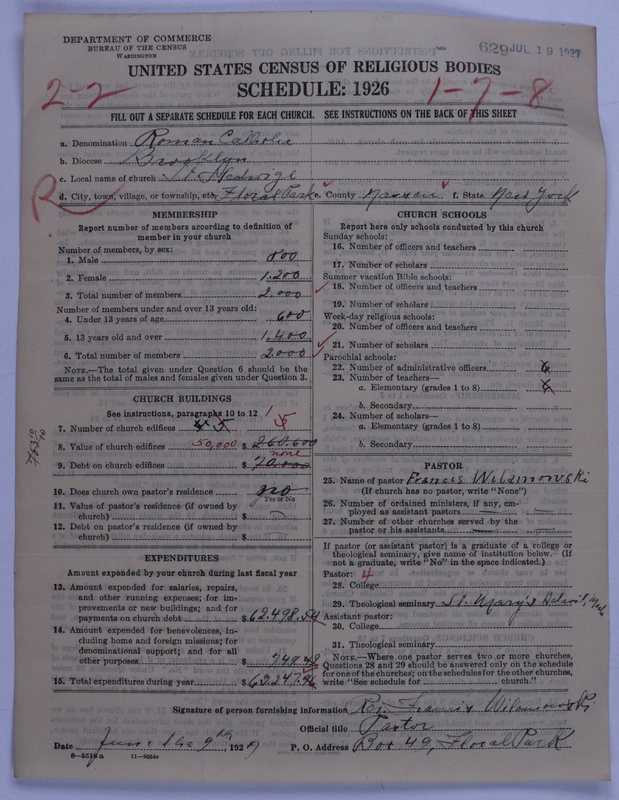 DEPARTMENT OF COMMERCE
BUREAU OF THE CENSUS
WASHINGTON
629 JUL 19 1927
UNITED STATES CENSUS OF RELIGIOUS BODIES
SCHEDULE: 1926
2-2
1-7-8
FILL OUT A SEPARATE SCHEDULE FOR EACH CHURCH. SEE INSTRUCTIONS ON THE BACK OF THIS SHEET
a. Denomination Roman Catholic
b. Diocese Brooklyn
c. Local name of church St Hedwige
R
d. City, town, village, or township, etc. Floral Park e. County Nassau f. State New York
MEMBERSHIP
Report number of members according to definition of
member in your church
Number of members, by sex:
1. Male 800
2. Female 1.200
3. Total number of members 2.000
Number of members under and over 13 years old:
4. Under 13 years of age 600
5. 13 years old and over 1.400
6. Total number of members 2000
NOTE.—The total given under Question 6 should be
the same as the total of males and females given under Question 3.
CHURCH BUILDINGS
See instructions, paragraphs 10 to 12
7. Number of church edifices 5
8. Value of church edifices 50,000 $ 260.600
none
9. Debt on church edifices $ 70.000
10. Does church own pastor's residence no
Yes or No
11. Value of pastor's residence (if owned by
church) $
12. Debt on pastor's residence (if owned by
church) $
EXPENDITURES
Amount expended by your church during last fiscal year
13. Amount expended for salaries, repairs,
and other running expenses; for im-
provements or new buildings; and for
payments on church debt $ 62.498.54
14. Amount expended for benevolences, in-
cluding home and foreign missions; for
denominational support; and for all
other purposes $
15. Total expenditures during year $ 63.247.96
CHURCH SCHOOLS
Report here only schools conducted by this church
Sunday schools:
16. Number of officers and teachers
17. Number of scholars
Summer vacation Bible schools:
18. Number of officers and teachers
19. Number of scholars
Week-day religious schools:
20. Number of officers and teachers
21. Number of scholars
Parochial schools:
22. Number of administrative officers
23. Number of teachers—
a. Elementary (grades 1 to 8)
b. Secondary
24. Number of scholars—
a. Elementary (grades 1 to 8)
b. Secondary
PASTOR
25. Name of pastor Francis Wilamowski
(If church has no pastor, write "None")
26. Number of ordained ministers, if any, em-
ployed as assistant pastors —
27. Number of other churches served by the
pastor or his assistants —
If pastor (or assistant pastor) is a graduate of a college or
theological seminary, give name of institution below. (If
not a graduate, write "No" in the space indicated.)
Pastor: 4
28. College
29. Theological seminary St. Mary's
Assistant pastor:
30. College
31. Theological seminary
NOTE.—Where one pastor serves two or more churches,
Questions 28 and 29 should be answered only on the schedule
for one of the churches; on the schedules for the other churches,
write "See schedule for church."
Signature of person furnishing information Rev. Francis Wilamowski
Official title Pastor
Date June the 9th, 1927 P. O. Address Box 49, Floral Park
8—5518a 11—9084a